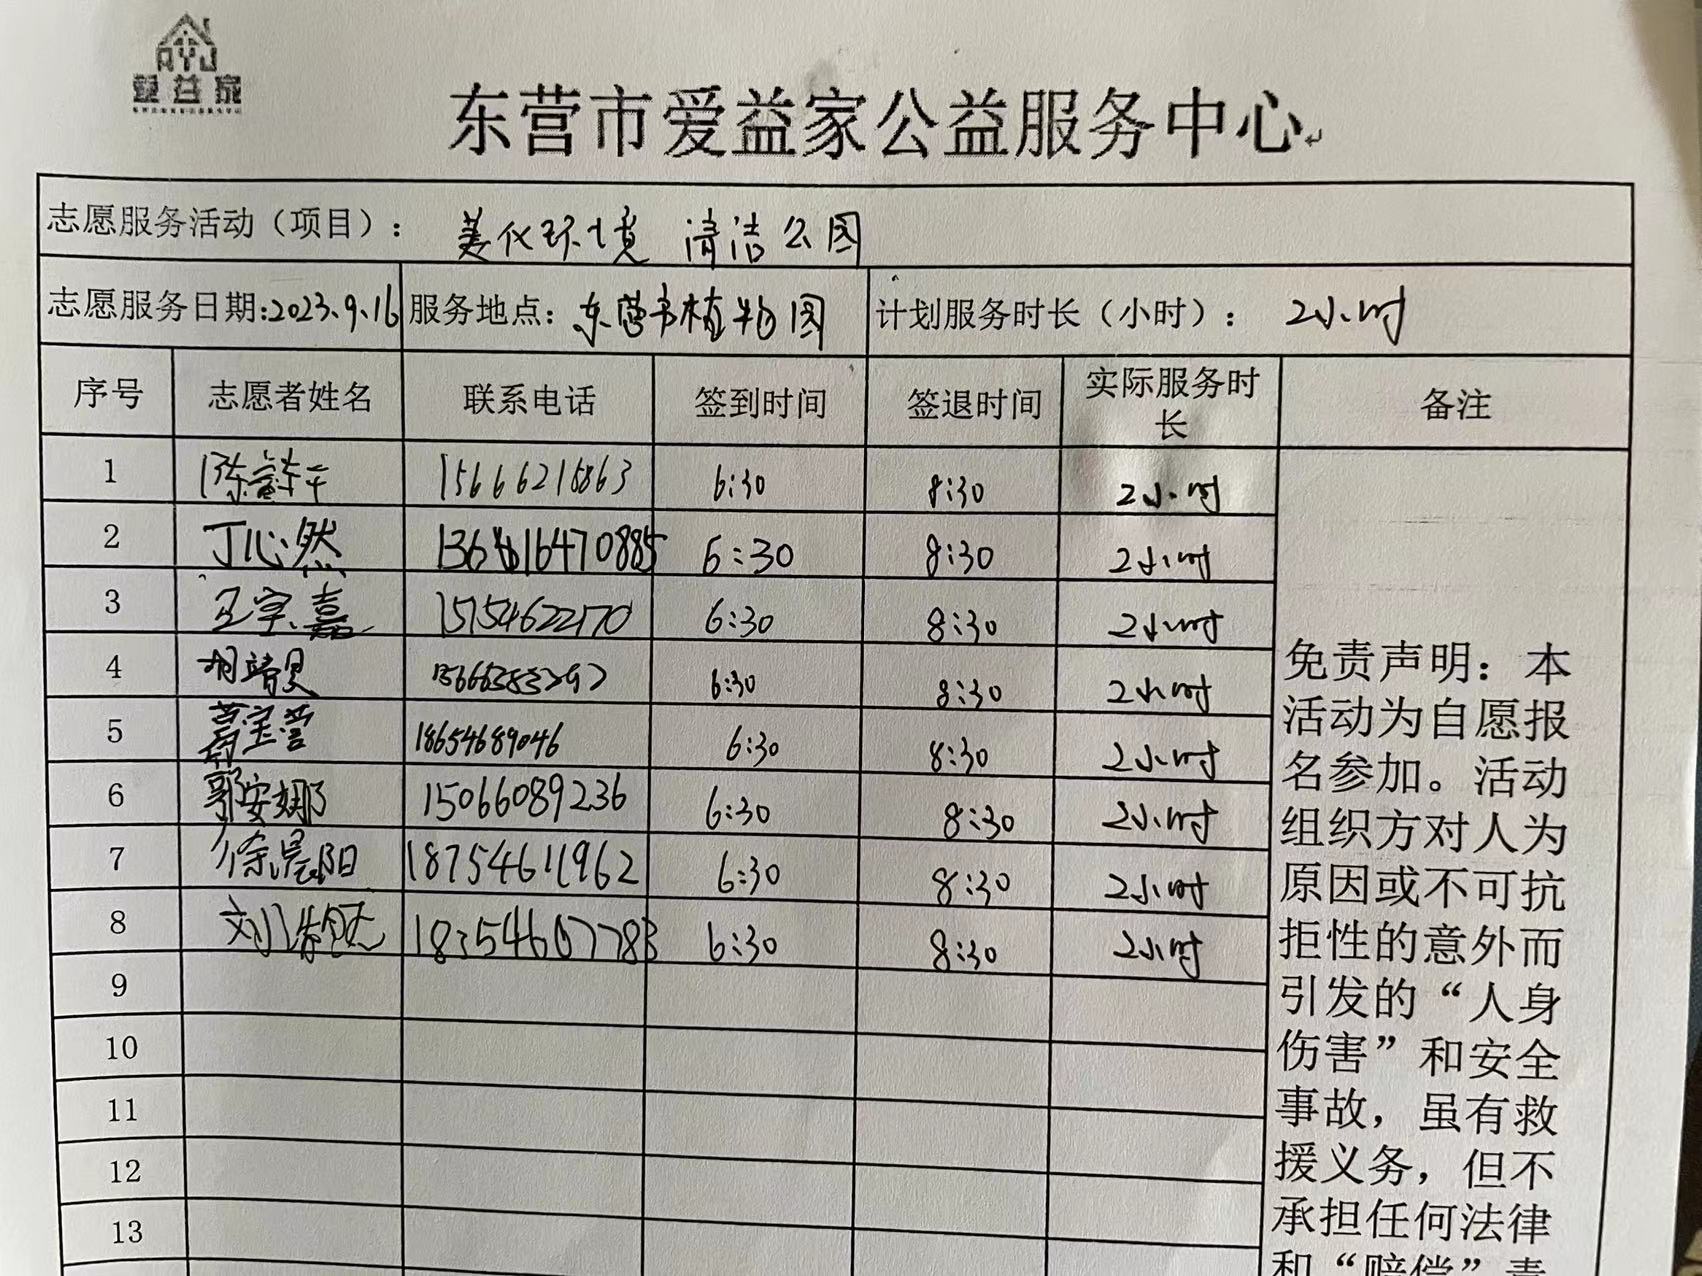 AYJ
爱益家
东营市爱益家公益服务中心
志愿服务活动（项目）： 美化环境 清洁公园
志愿服务日期:2023.9.16 服务地点：东营市植物园 计划服务时长（小时）： 2小时
序号 志愿者姓名 联系电话 签到时间 签退时间 实际服务时长 备注
1 15666216863 6:30 8:30 2小时
2 丁心然 6:30 8:30 2小时
3 王宇嘉 15154622170 6:30 8:30 2小时
4 胡靖旻 6:30 8:30 2小时
5 葛宝莹 18654689046 6:30 8:30 2小时
6 鄂安娜 15066089236 6:30 8:30 2小时
7 徐晨阳 18754611962 6:30 8:30 2小时
8 18354607783 6:30 8:30 2小时
9
10
11
12
13
免责声明：本
活动为自愿报
名参加。活动
组织方对人为
原因或不可抗
拒性的意外而
引发的“人身
伤害”和安全
事故，虽有救
援义务，但不
承担任何法律
和“赔偿”责